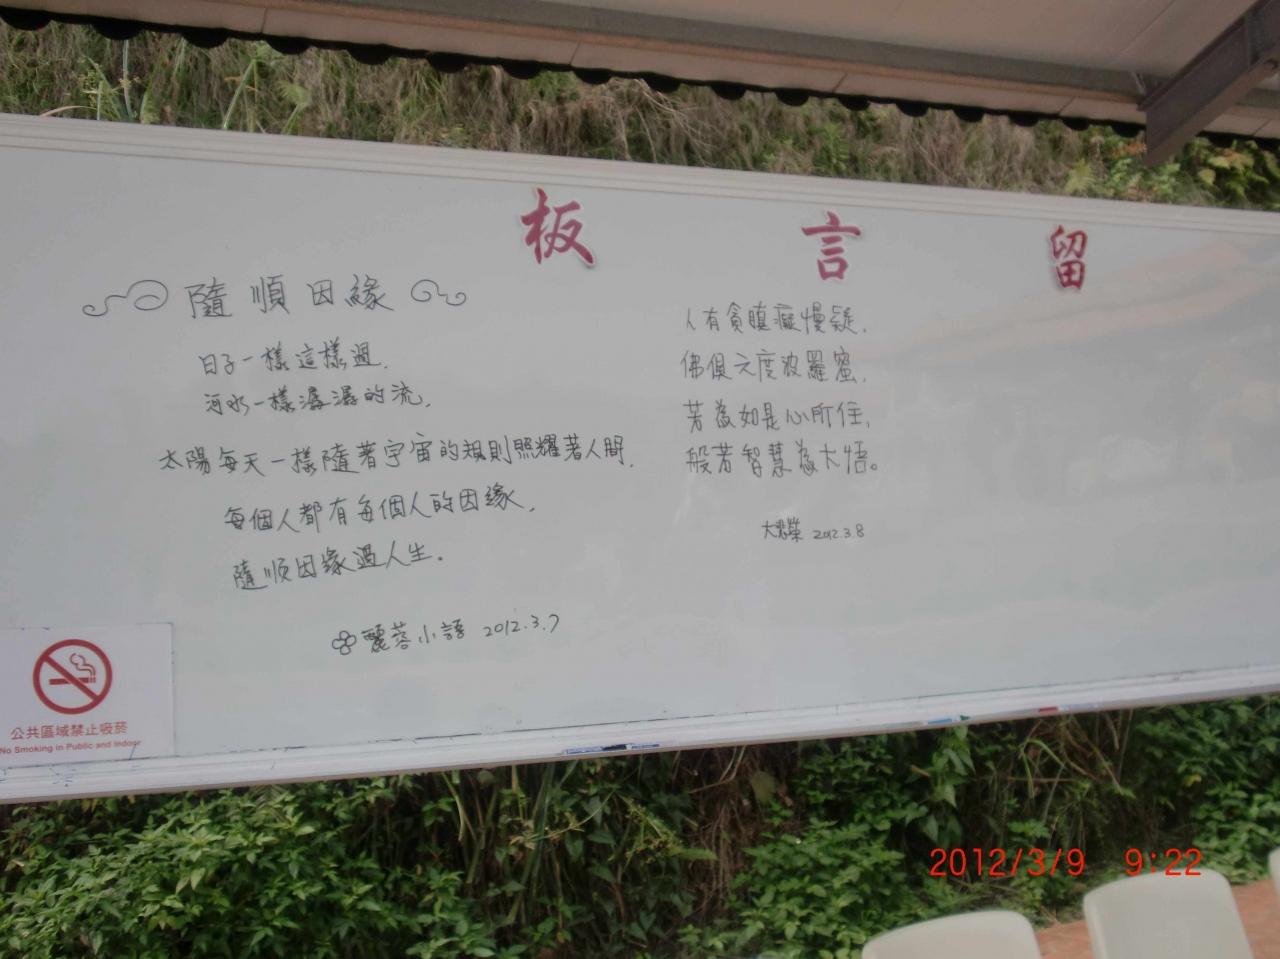 留言板
隨順因緣
日子一樣這樣過.
河水一樣潺潺的流.
太陽每天一樣隨著宇宙的規則照耀著人間.
每個人都有每個人的因緣.
隨順因緣過人生.
麗蓉小語 2012.3.7
人有貪瞋癡慢疑.
佛俱六度波羅蜜.
若為如是心所住,
般若智慧為大悟。
2012.3.8
公共區域禁止吸菸
No Smoking in Public and Indoor
2012/3/9 9:22